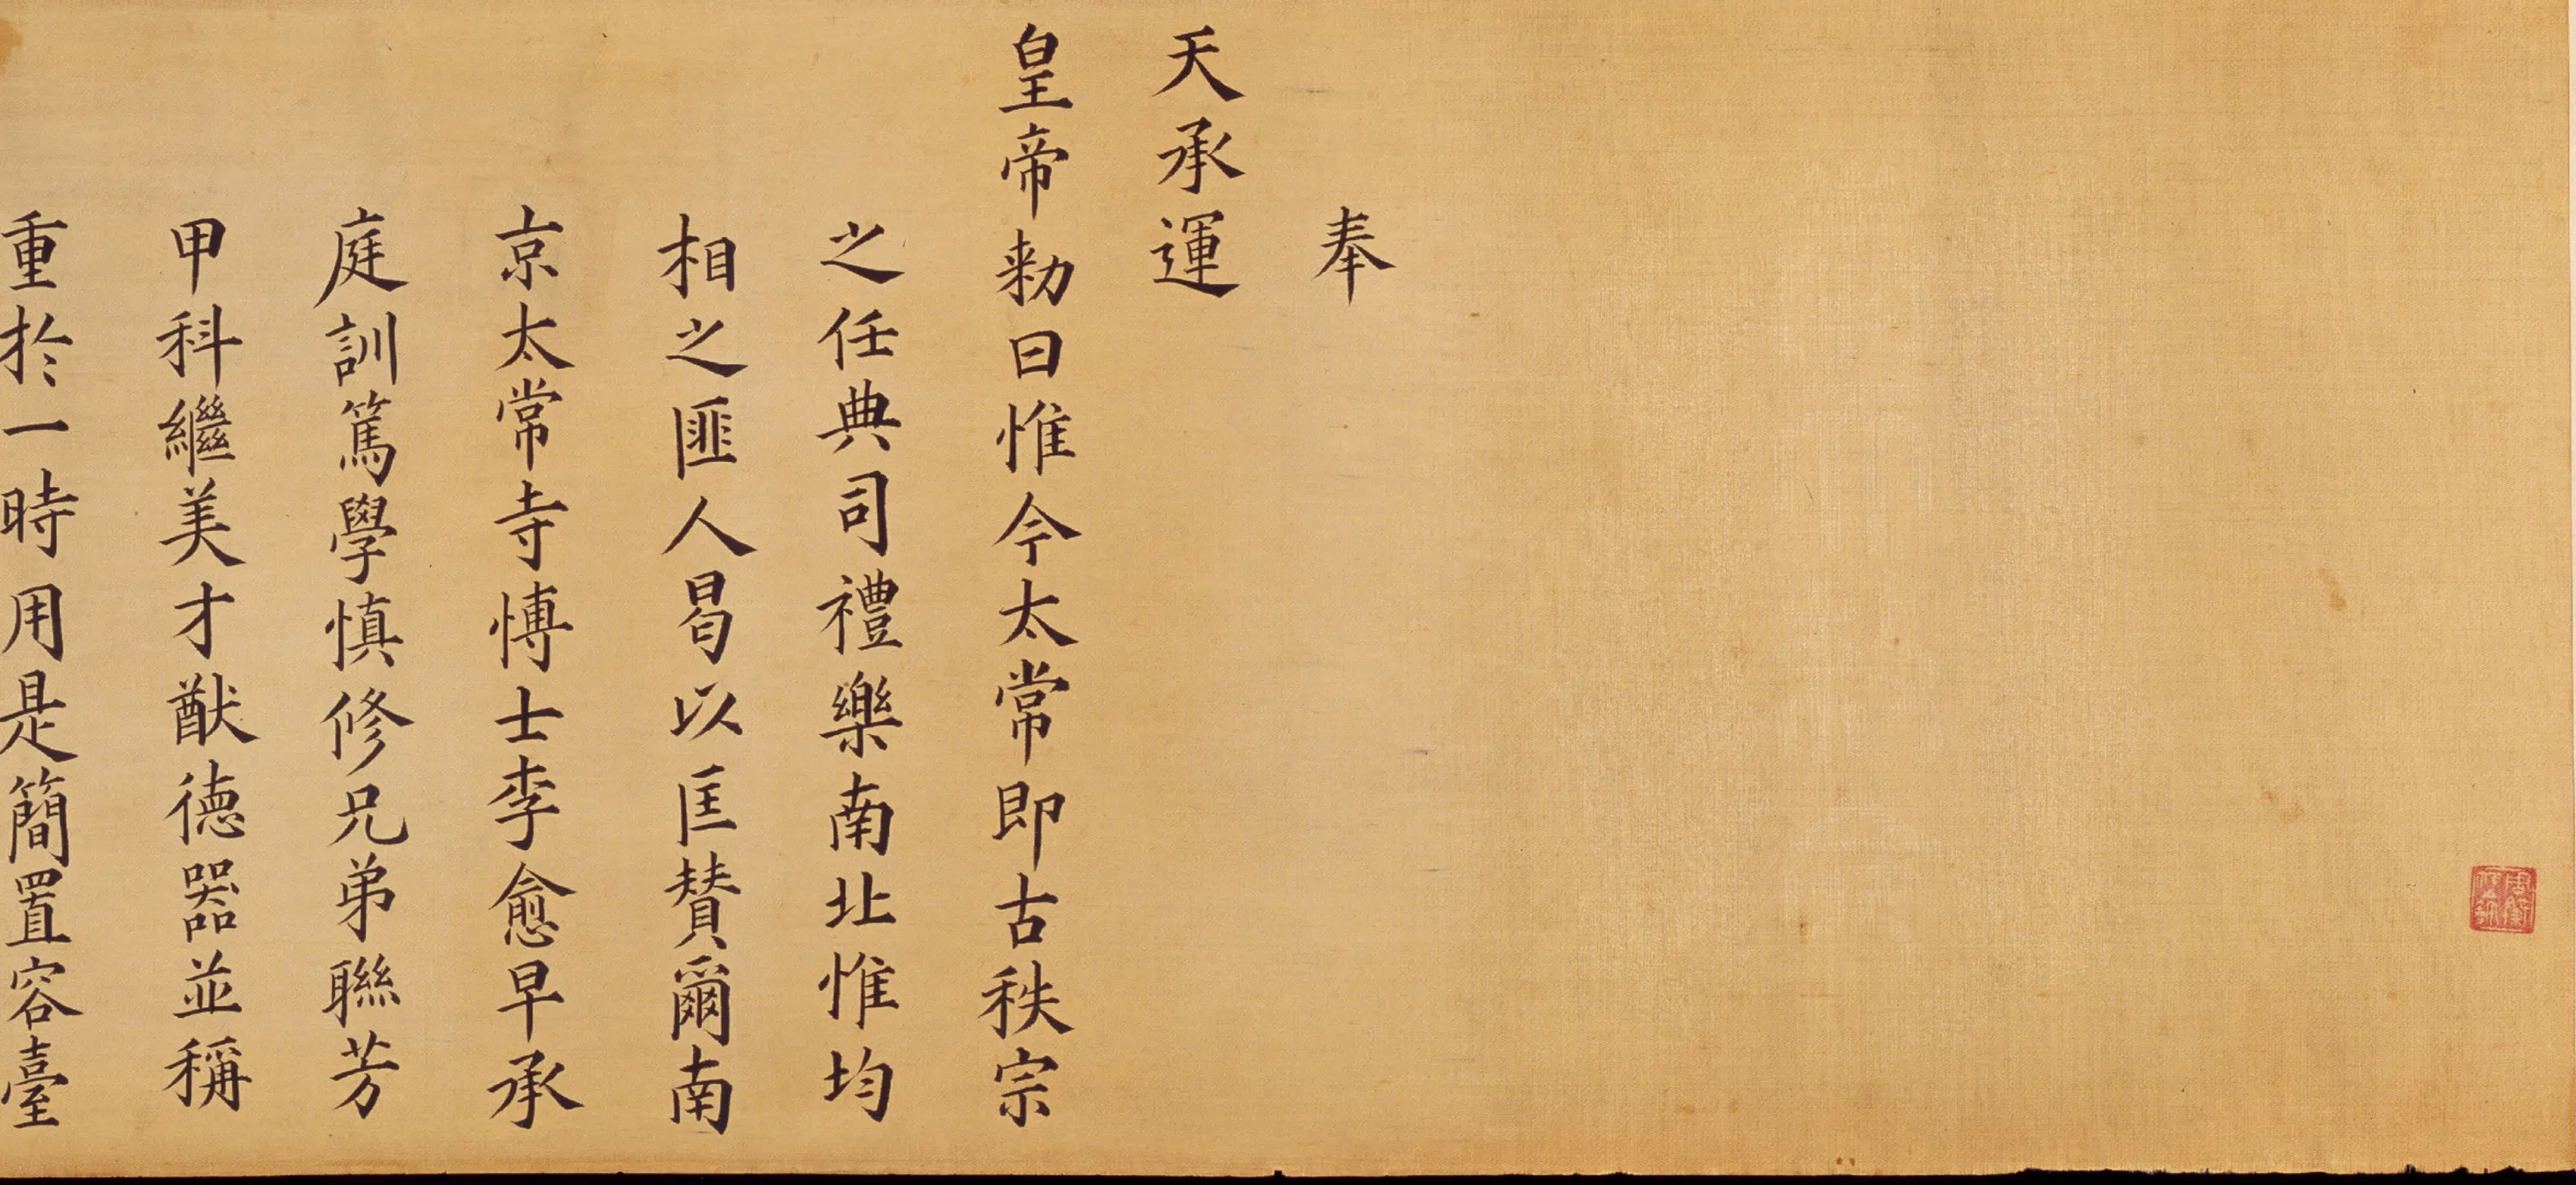 奉
天承運
皇帝勑曰惟今太常即古秩宗
之任典司禮樂南北惟均
相之匪人曷以匡賛爾南
京太常寺博士李愈早承
庭訓篤學慎修兄弟聯芳
甲科繼美才猷德器並稱
重於一時用是簡置容臺